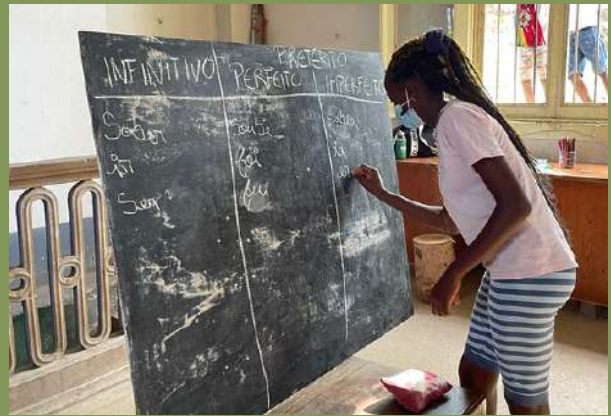 PRETÉRITO
INFINITIVO PERFEITO IMPERFEITO
Saber soube
ir foi ia
Ser fui